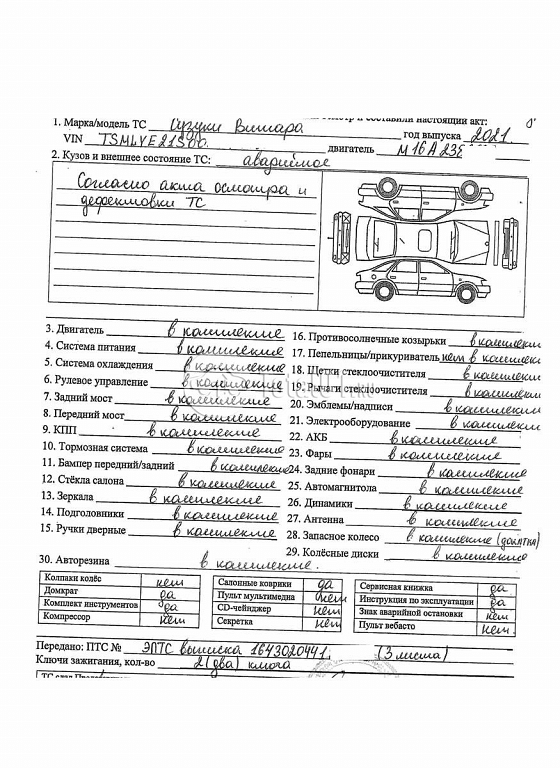 составили настоящий акт:
1. Марка/модель ТС Сузуки Витара год выпуска 2021
VIN TSMLYE21S00 двигатель M16A235
2. Кузов и внешнее состояние ТС: аварийное
Согласно акта осмотра и
дефектовки ТС
3. Двигатель в комплекте
4. Система питания в комплекте
5. Система охлаждения в комплекте
6. Рулевое управление в комплекте
7. Задний мост в комплекте
8. Передний мост в комплекте
9. КПП в комплекте
10. Тормозная система в комплекте
11. Бампер передний/задний в комплекте
12. Стёкла салона в комплекте
13. Зеркала в комплекте
14. Подголовники в комплекте
15. Ручки дверные в комплекте
16. Противосолнечные козырьки в комплекте
17. Пепельницы/прикуриватель нет в комплекте
18. Щетки стеклоочистителя в комплекте
19. Рычаги стеклоочистителя в комплекте
20. Эмблемы/надписи в комплекте
21. Электрооборудование в комплекте
22. АКБ в комплекте
23. Фары в комплекте
24. Задние фонари в комплекте
25. Автомагнитола в комплекте
26. Динамики в комплекте
27. Антенна в комплекте
28. Запасное колесо в комплекте (докатка)
29. Колёсные диски в комплекте
30. Авторезина в комплекте.
Колпаки колёс нет
Домкрат да
Комплект инструментов да
Компрессор нет
Салонные коврики да
Пульт мультимедиа нет
CD-чейнджер нет
Секретка нет
Сервисная книжка да
Инструкция по эксплуатации да
Знак аварийной остановки нет
Пульт вебасто нет.
Передано: ПТС № ЭПТС выписка 1643020441 (3 листа)
Ключи зажигания, кол-во 2 (два) ключа